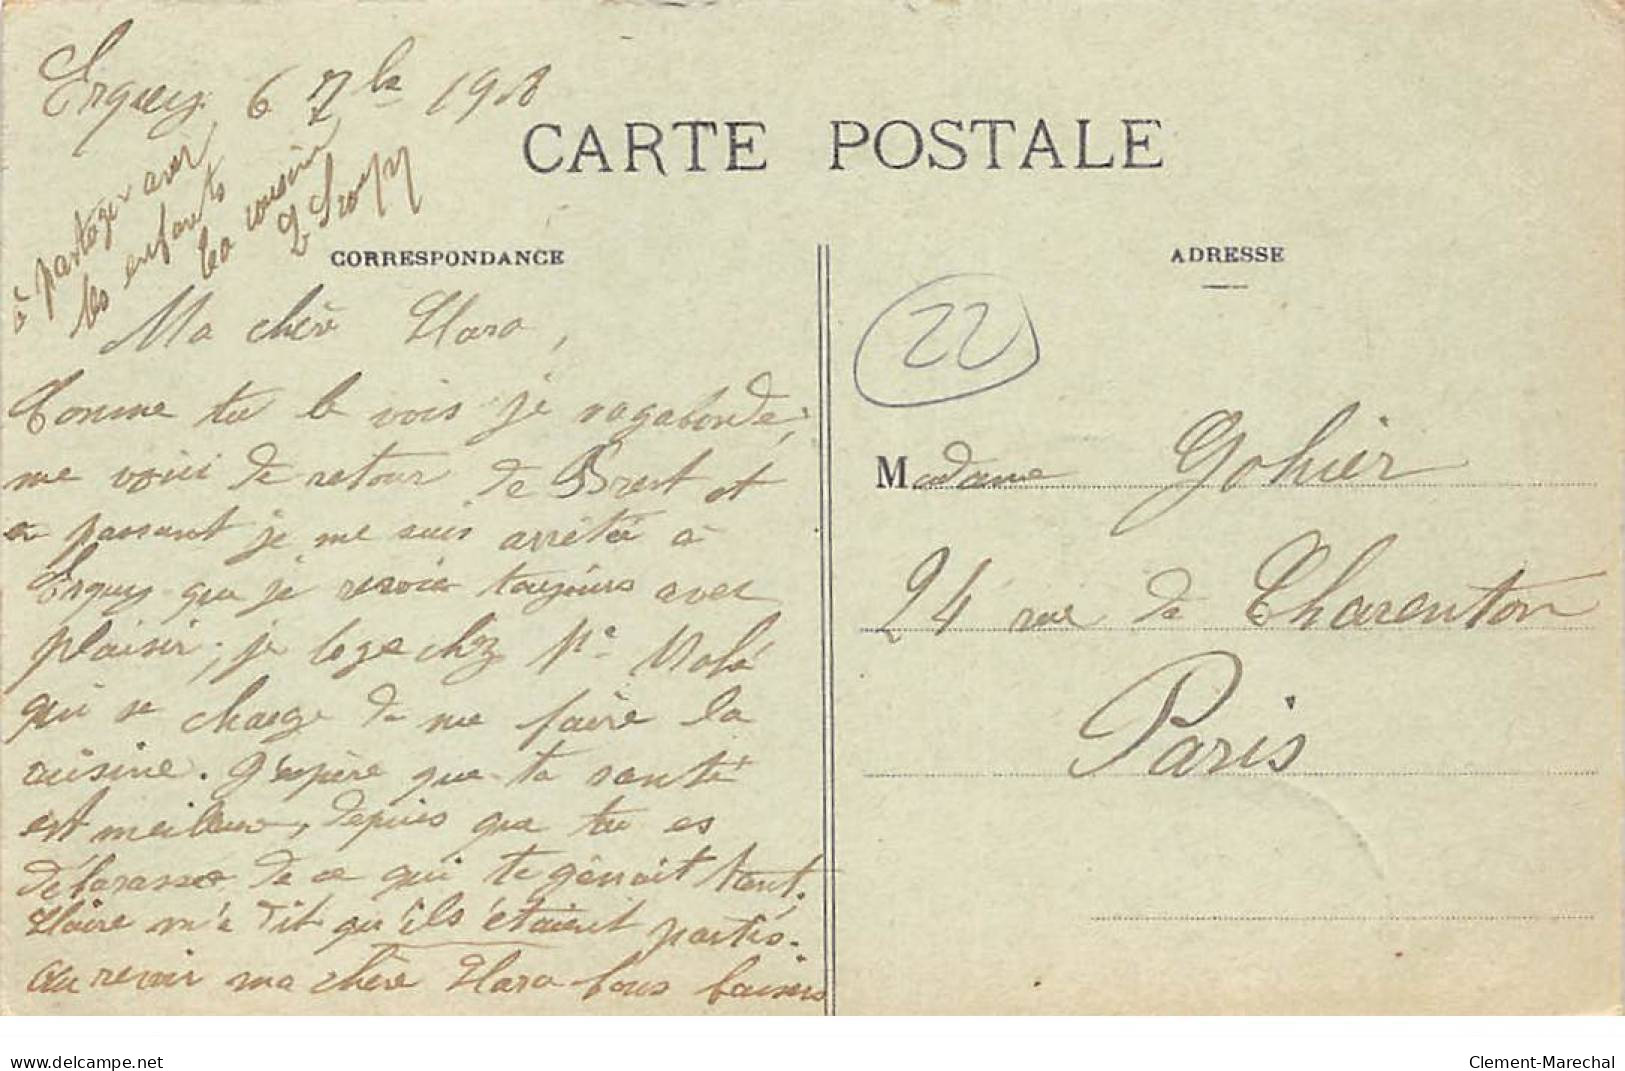 Erquy 6 7bre 19
CARTE POSTALE
CORRESPONDANCE
ADRESSE
Ma chère Clara,
Comme tu le vois je vagabonde,
me voici de retour de Brest et
en passant je me suis arrêtée à
Erquy que je revoie toujours avec
plaisir, je loge chez Me
qui se charge de me faire la
cuisine. J'espère que ta santé
est meilleure, depuis que tu es
débarassée de ce qui te gênait tant,
Claire m'a dit qu'ils étaient partis.
Au revoir ma chère Clara bons baisers
à partager avec
les enfants
ta cousine
22
Madame Gohier
24 rue de Charenton
Paris
delcampe.net
Clement-Marechal